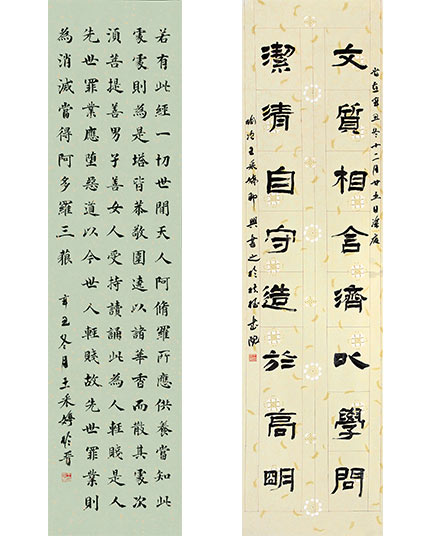 若有此經一切世間天人阿脩羅所應供養當知此
處處則為是塔皆恭敬圍遶以諸華香而散其處次
湏菩提善男子善女人受持讀誦此為人輕賤是人
先世罪業應墮惡道以今世人輕賤故先世罪業則
為消滅當得阿多羅三藐
辛丑冬月王采婷
在辛丑冬十二月廿五日
文質相合濟以學問
潔清自守造於高明
王采婷即興書之於